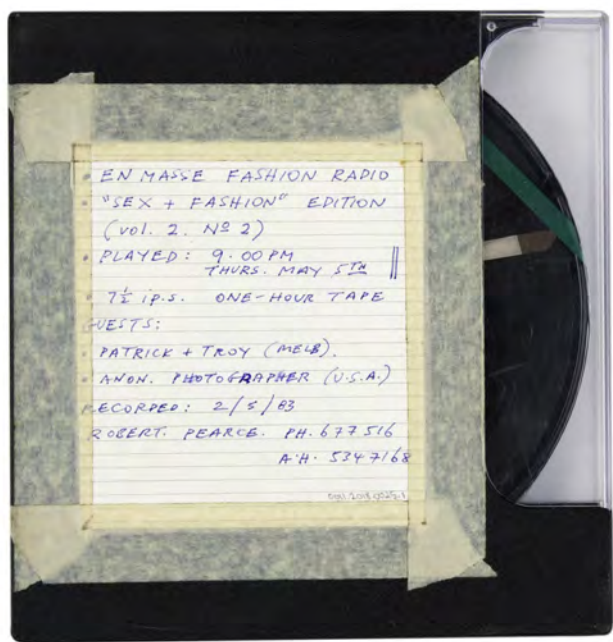 • EN MASSE FASHION RADIO
• "SEX + FASHION" EDITION
(vol. 2. Nº 2)
• PLAYED: 9.00 PM
THURS. MAY 5TH
• 7½ i.p.s. ONE-HOUR TAPE
GUESTS:
• PATRICK + TROY (MELB).
• ANON. PHOTOGRAPHER (U.S.A.)
RECORDED: 2/5/83
ROBERT. PEARCE. PH. 677516
A.H. 5347168